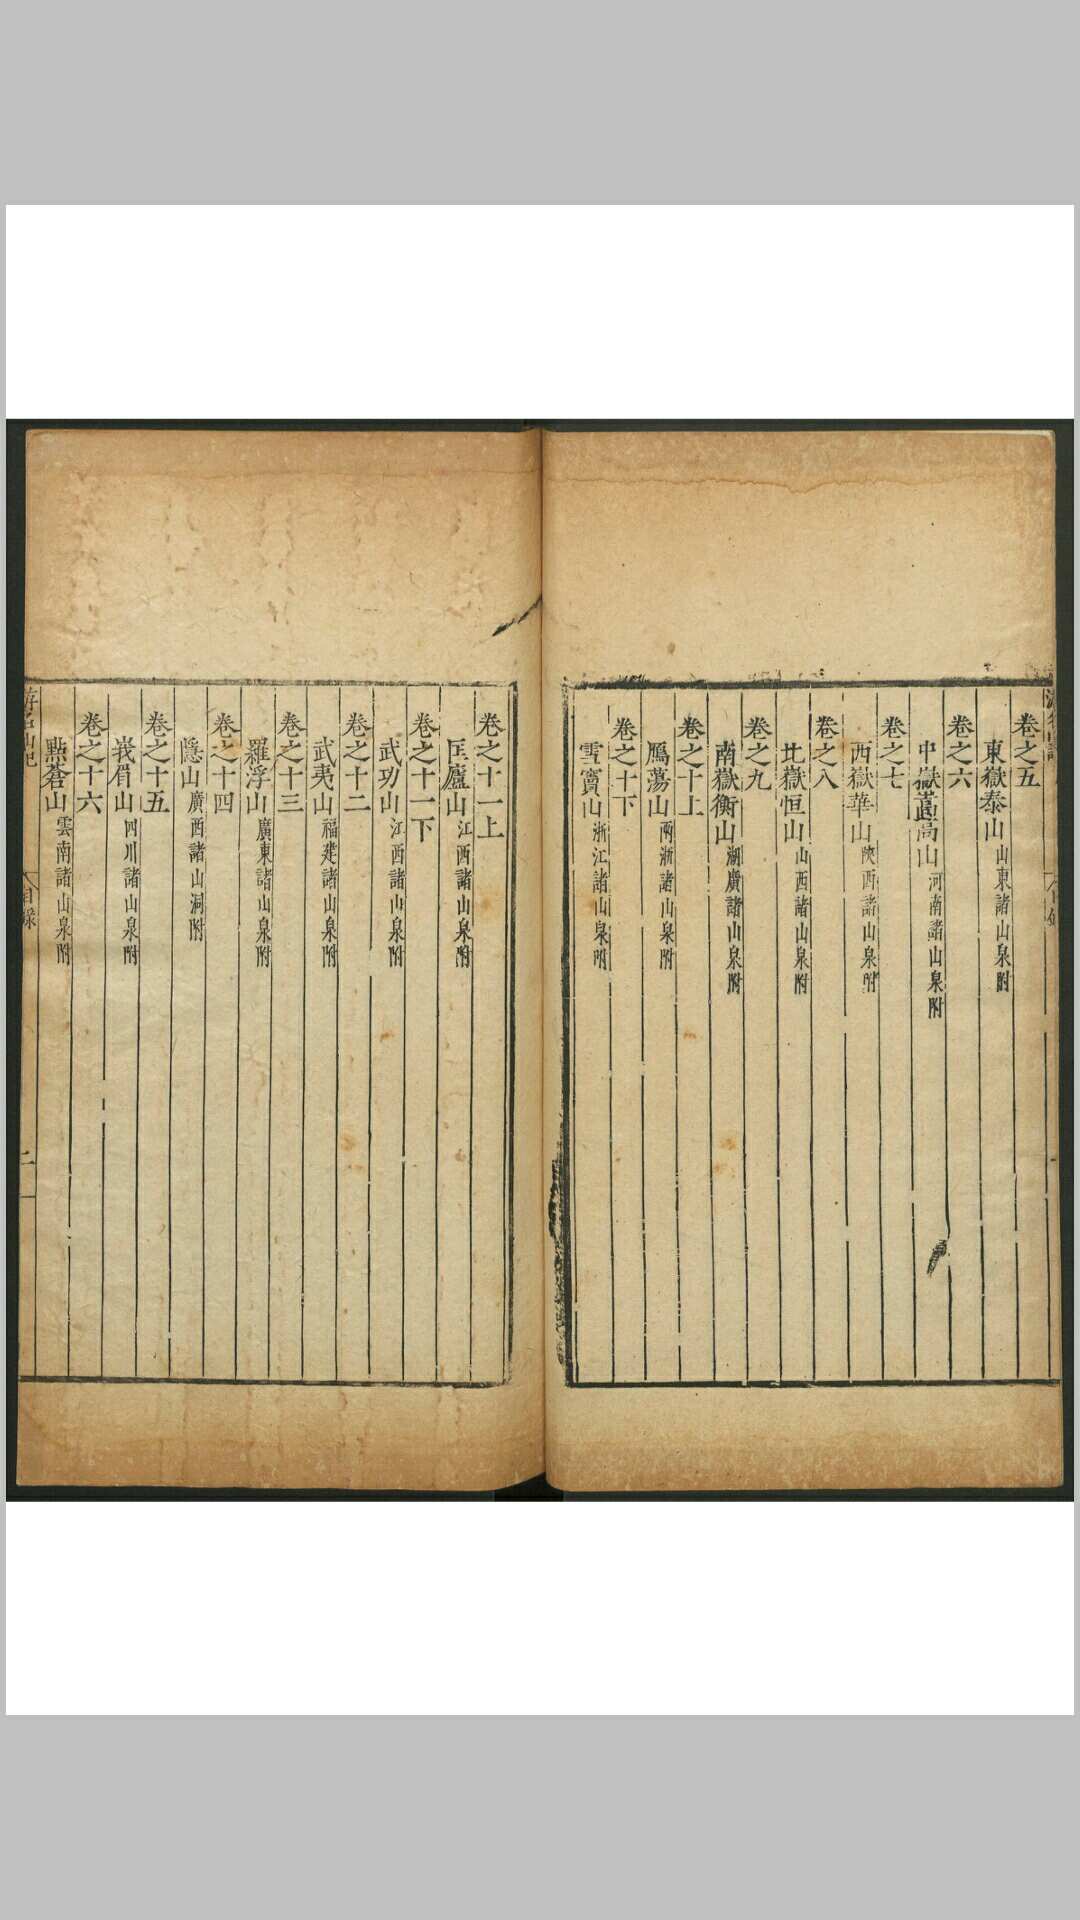 卷之五
東嶽泰山山東諸山泉附
卷之六
中嶽嵩高山河南諸山泉附
卷之七
西嶽華山陝西諸山泉附
卷之八
北嶽恒山山西諸山泉附
卷之九
南嶽衡山湖廣諸山泉附
卷之十上
鴈蕩山兩浙諸山泉附
卷之十下
雪竇山浙江諸山泉附
卷之十一上
匡廬山江西諸山泉附
卷之十一下
武功山江西諸山泉附
卷之十二
武夷山福建諸山泉附
卷之十三
羅浮山廣東諸山泉附
卷之十四
隱山廣西諸山洞附
卷之十五
峩眉山四川諸山泉附
卷之十六
點蒼山雲南諸山泉附
游名山記
目錄
二